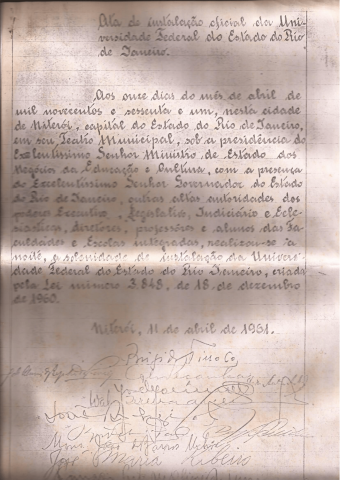 Ata de instalação oficial da Uni-
versidade Federal do Estado do Rio
de Janeiro.
Aos onze dias do mês de abril de
mil novecentos e sessenta e um, nesta cidade
de Niterói, capital do Estado do Rio de Janeiro,
em seu Teatro Municipal, sob a presidência do
Excelentíssimo Senhor Ministro de Estado dos
Negócios da Educação e Cultura, com a presença
do Excelentíssimo Senhor Governador do Estado
do Rio de Janeiro, outras altas autoridades dos
poderes Executivo, Legislativo, Judiciário e Ecle-
siástico, diretores, professores e alunos das Fa-
culdades e Escolas integradas, realizou-se à
noite, a solenidade de instalação da Univers-
dade Federal do Estado do Rio Janeiro, criada
pela Lei número 3.848, de 18 de dezembro
de 1960.
Niterói, 11 de abril de 1961.
José Maria Ribeiro